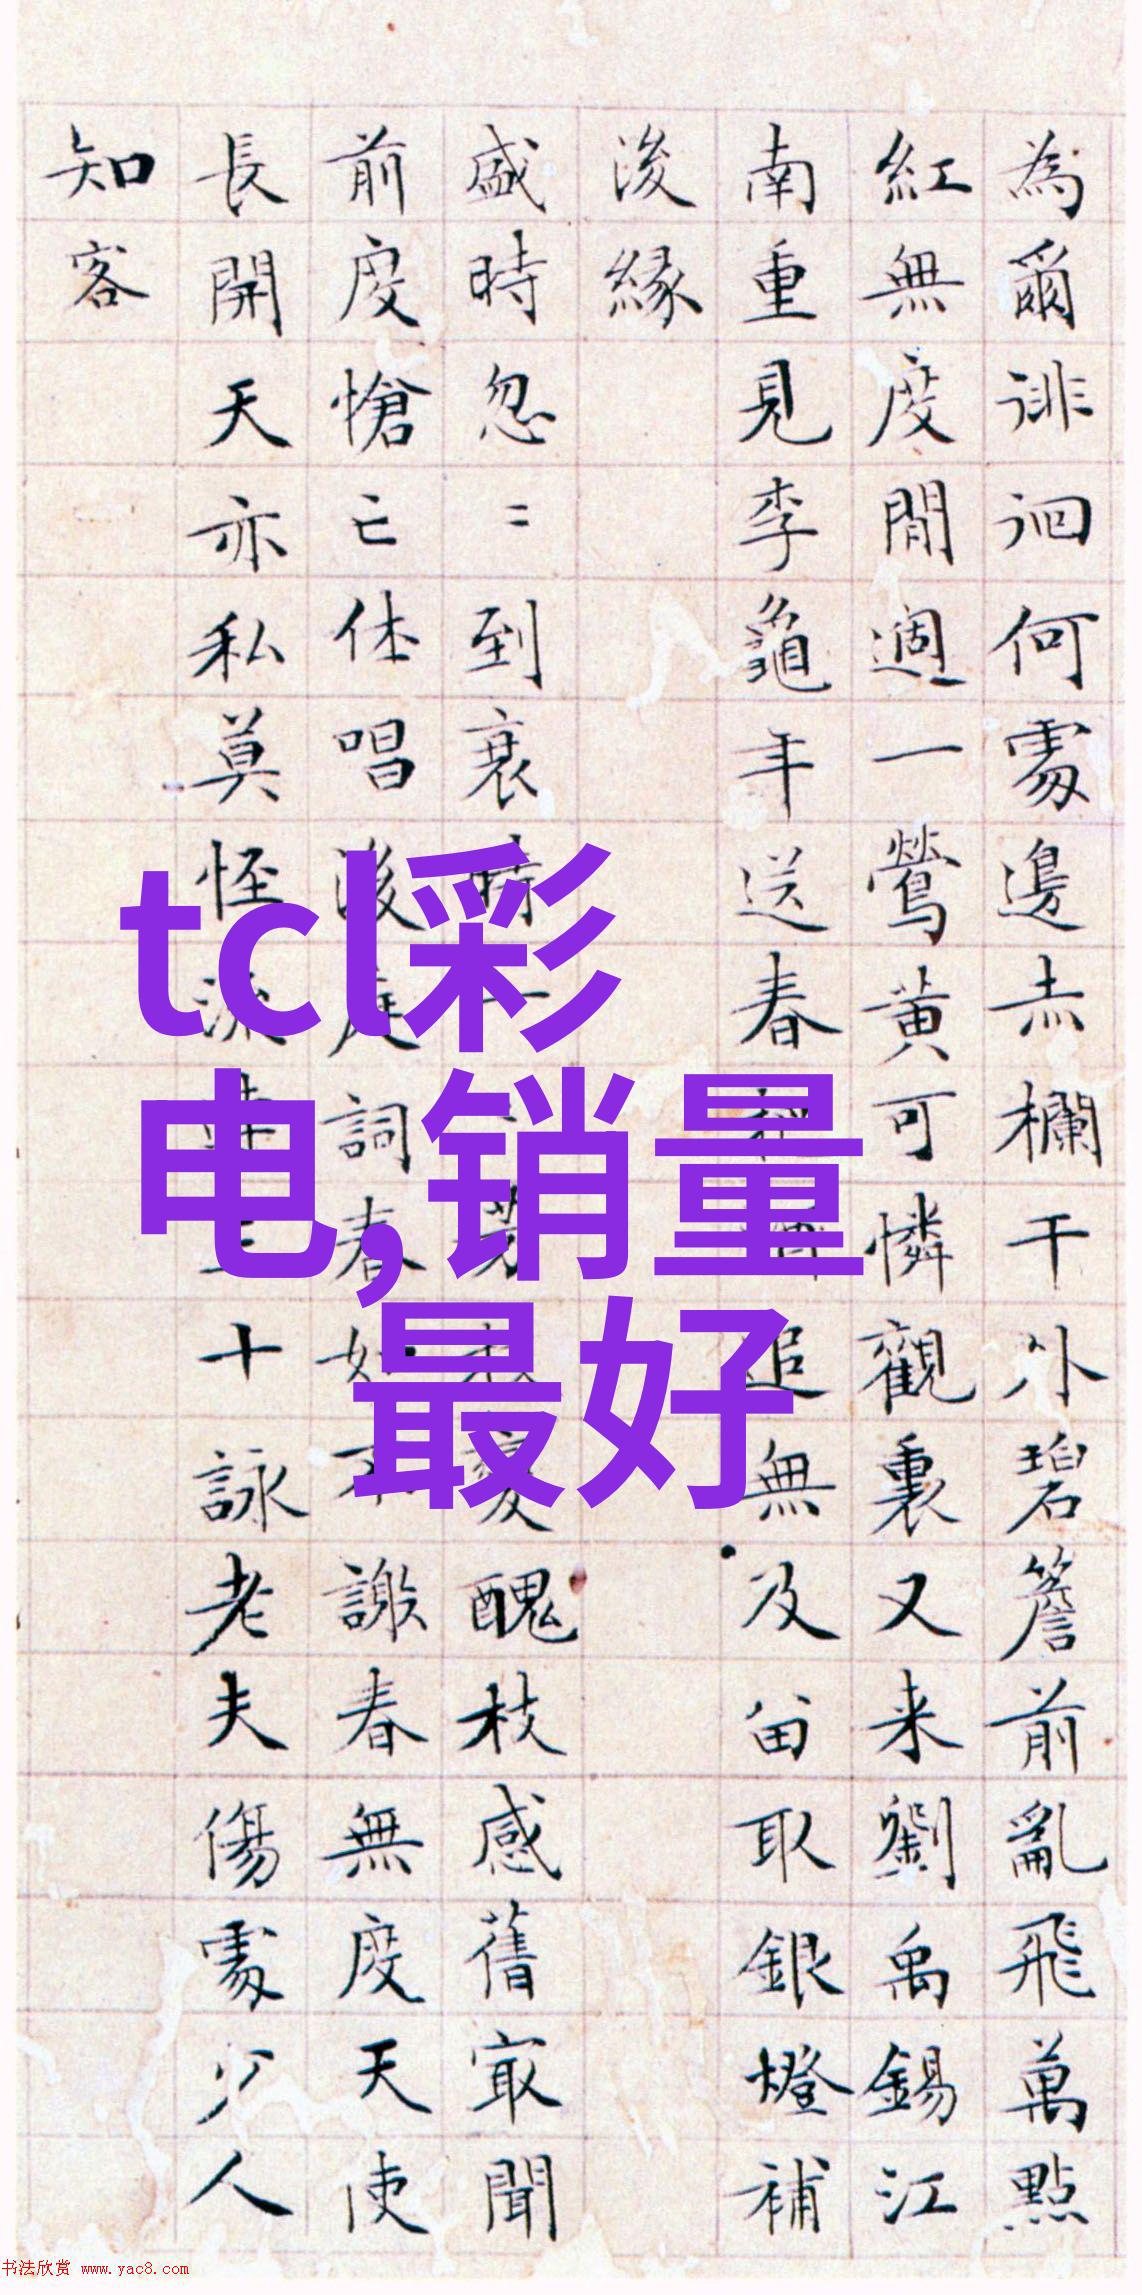 tcl彩
电,销量
最好
為爾徘徊何處邊赤欄干外碧簷前亂飛萬點
紅無度閒週一鶯黃可憐觀裏又来劉禹錫江
南重見李龜年送春追無及留取銀燈補
後緣
盛時忽〻到衰時一變醜枝感舊最聞
前度愴亡休唱後庭詞春如不謝春無度天使
長開天亦私莫怪流十詠老夫傷處少人
知客
书法欣赏 www.yac8.com